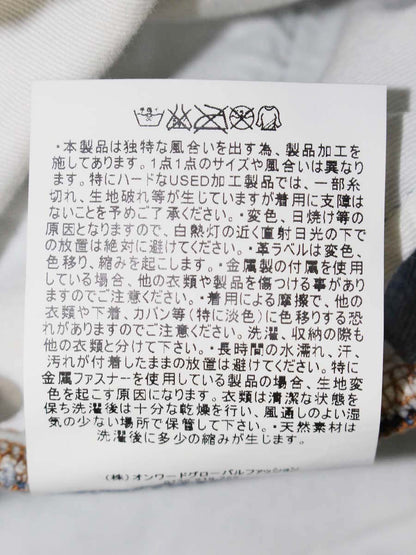 ・本製品は独特な風合いを出す為、製品加工を
施してあります。1点1点のサイズや風合いは異なり
ます。特にハードなUSED加工製品では、一部糸
切れ、生地破れ等が生じていますが着用に支障は
ないことを予めご了承ください。・変色、日焼け等の
原因となりますので、白熱灯の近く直射日光の下で
の放置は絶対に避けてください。・革ラベルは変色、
色移り、縮みを起こします。・金属製の付属を使用
している場合、他の衣類や製品を傷つける事があり
ますのでご注意ください。・着用による摩擦で、他の
衣類や下着、カバン等(特に淡色)に色移りする恐
れがありますのでご注意ください。洗濯、収納の際も
他の衣類と分けて下さい。・長時間の水濡れ、汗、
汚れが付着したままの放置は避けてください。特に
金属ファスナーを使用している製品の場合、生地変
色を起こす原因になります。衣類は清潔な状態を
保ち洗濯後は十分な乾燥を行い、風通しのよい湿
気の少ない場所で保管して下さい。・天然素材は
洗濯後に多少の縮みが生じます。
(株)オンワードグローバルファッション